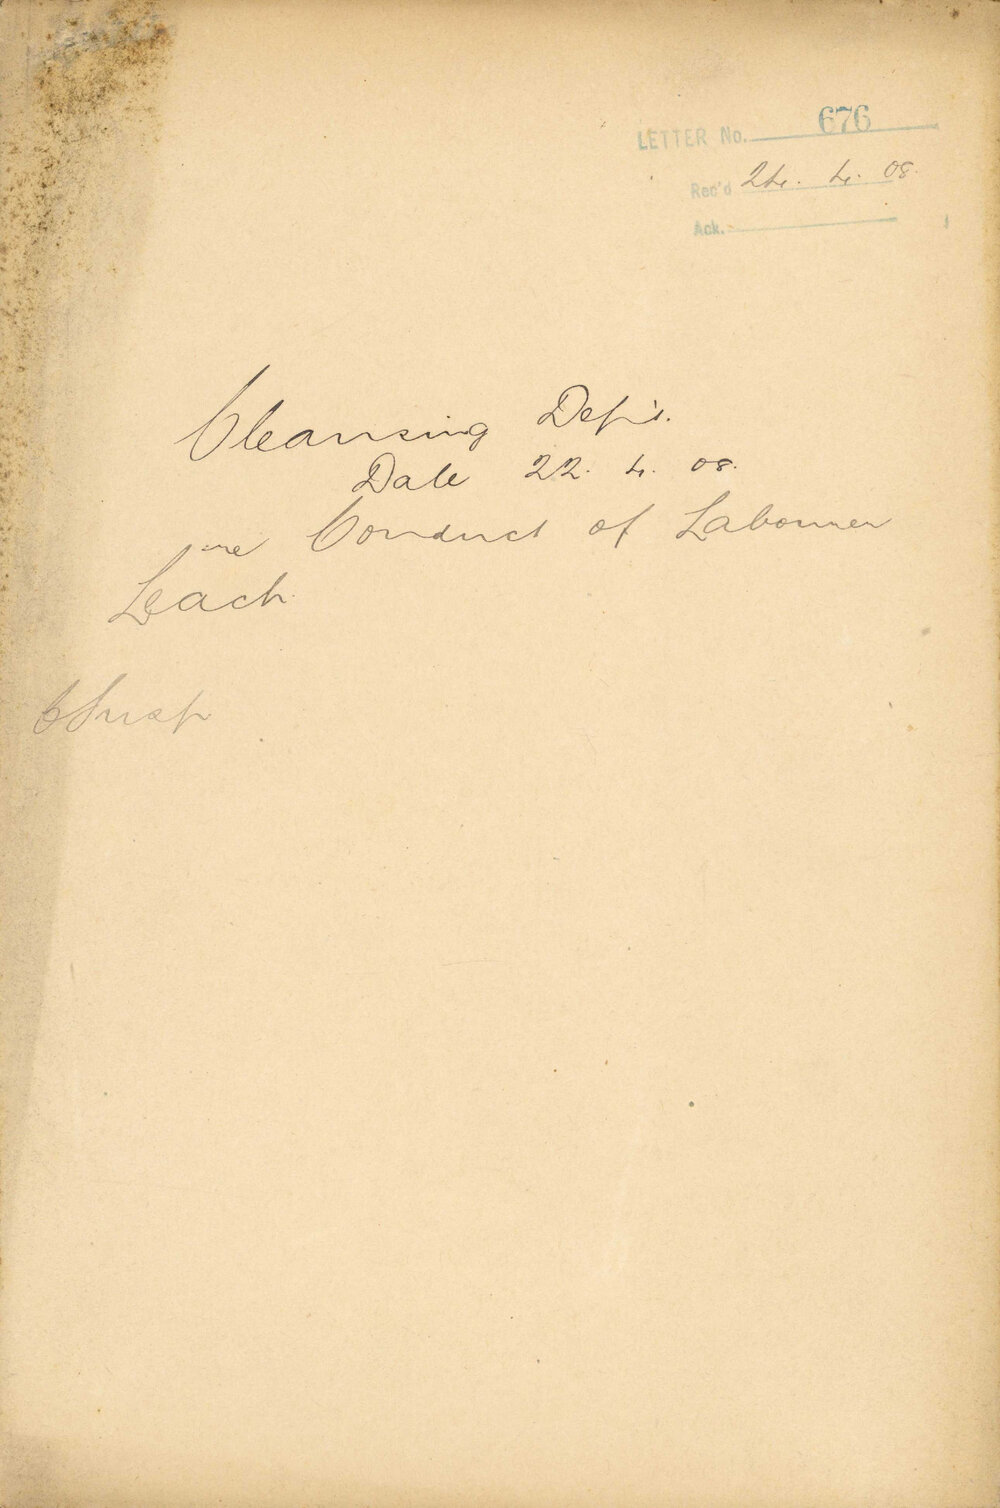 LETTER No. 676
Rec'd 24. 4. 08.
Ack.
Cleansing Dep't.
Date 22. 4. 08.
re Conduct of Labourer
Leach